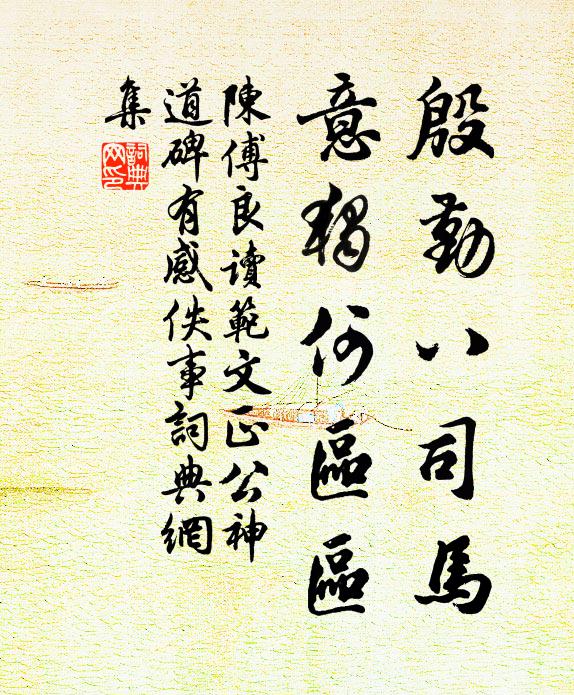 殷勤八司馬
意獨何區區
陳傅良讀範文正公神
道碑有感佚事詞典網
集
詞典
网印